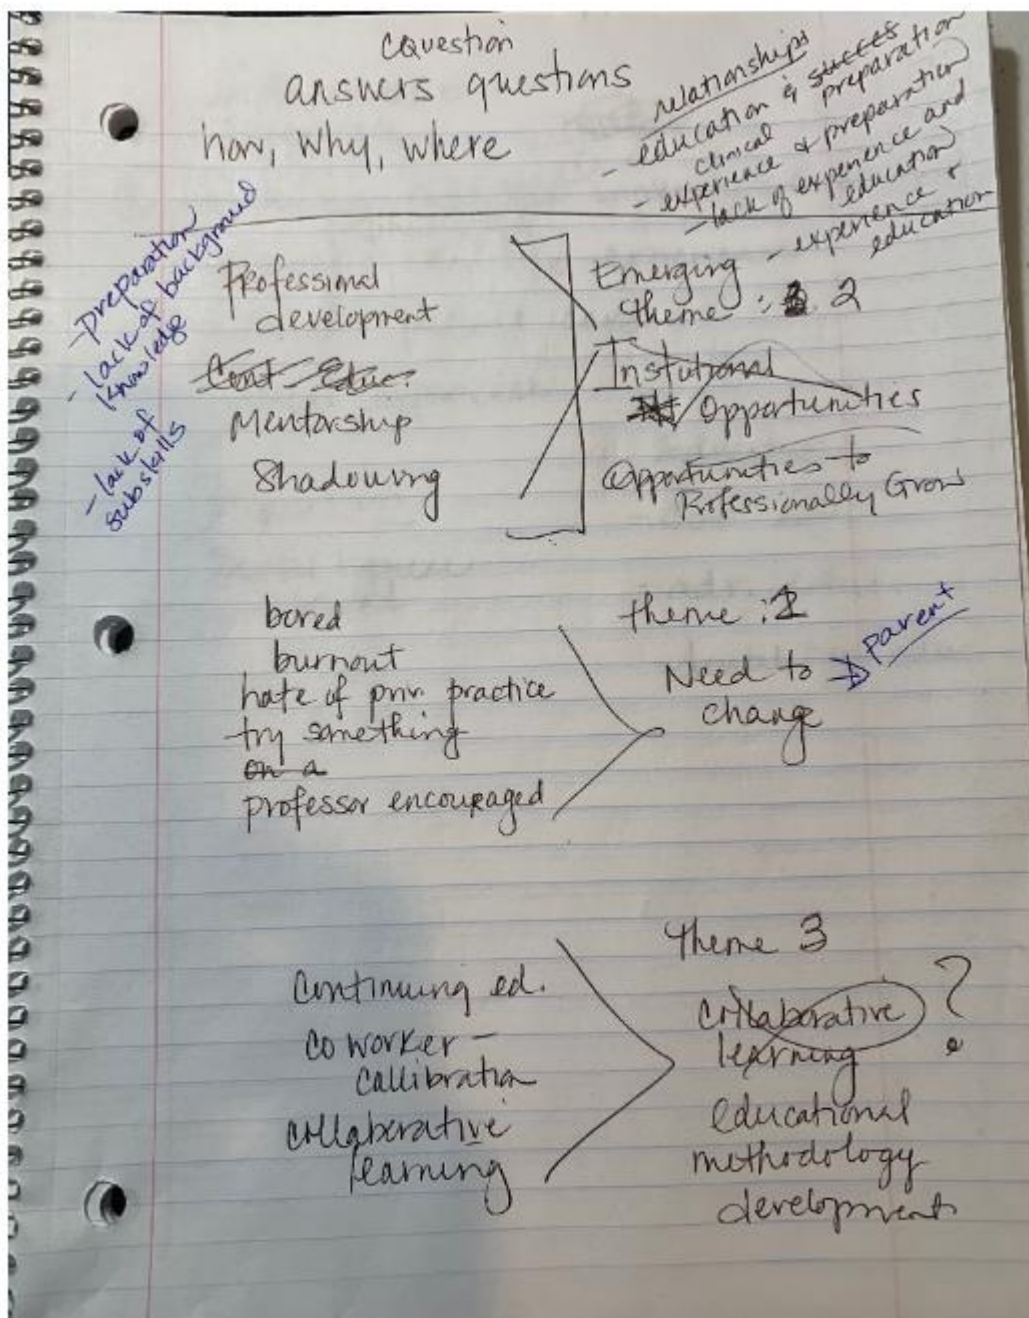 cQuestion
answers questions
how, Why, where
relationships
- education & succes
clinical preparation
- experience & preparation
- lack of experience and
education
- experience &
education
- preparation
- lack of background
knowledge
- lack of
subskills
Professional
development
Cont Educ.
Mentorship
Shadowing
Emerging
theme : 2
Instutional
Opportunities
Opportunities to
Professionally Grow
bored
burnout
hate of priv. practice
try something
on a
professor encouraged
theme : 1
Need to → parent
change
Continuing ed.
coworker -
callibration
collaborative
learning
theme 3
collaborative ?
learning
educational
methodology
development